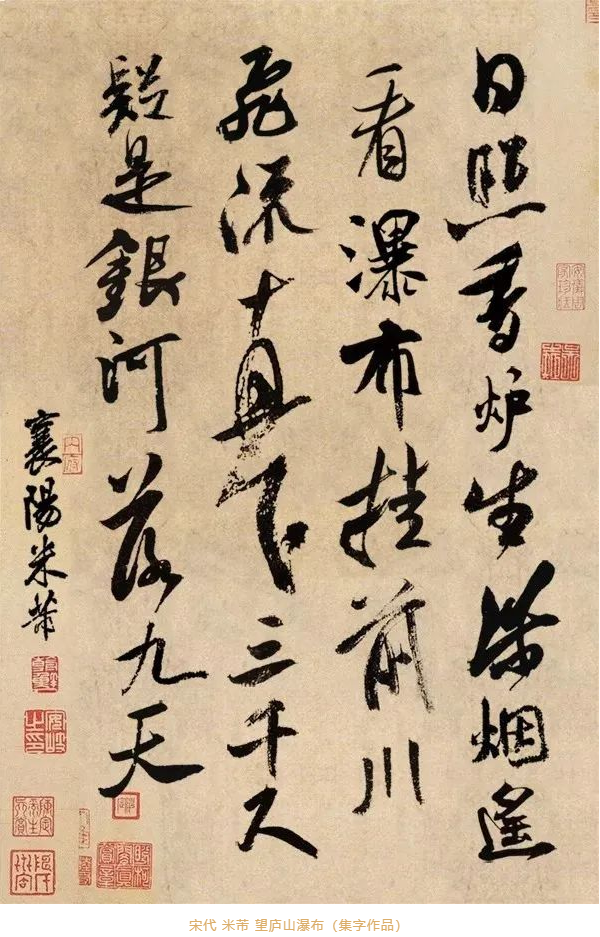 日照香炉生紫烟遥
看瀑布挂前川
飛流直下三千尺
疑是銀河落九天
襄陽米芾
宋代 米芾 望庐山瀑布（集字作品）